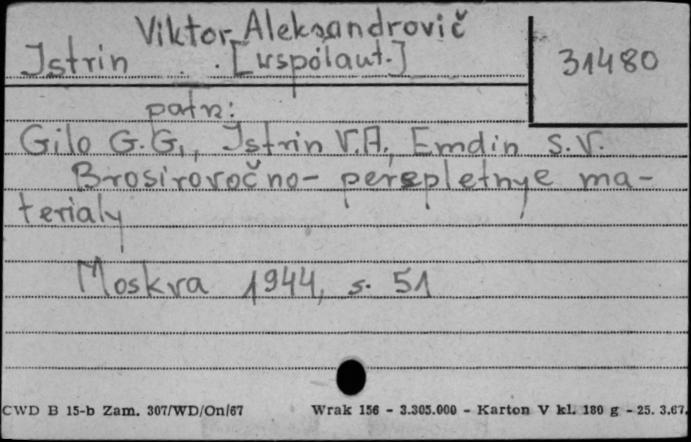 Viktor Aleksandrovič
Istrin [współaut.]
31480
patrz:
Gilo G.G., Istrin V.A., Emdin S.V.
Brosirovočno- perepletnye ma-
terialy
Moskva 1944, s. 51
CWD B 15-b Zam. 307/WD/On/67 Wrak 156 - 3.305.000 - Karton V kl. 180 g - 25. 3.67.